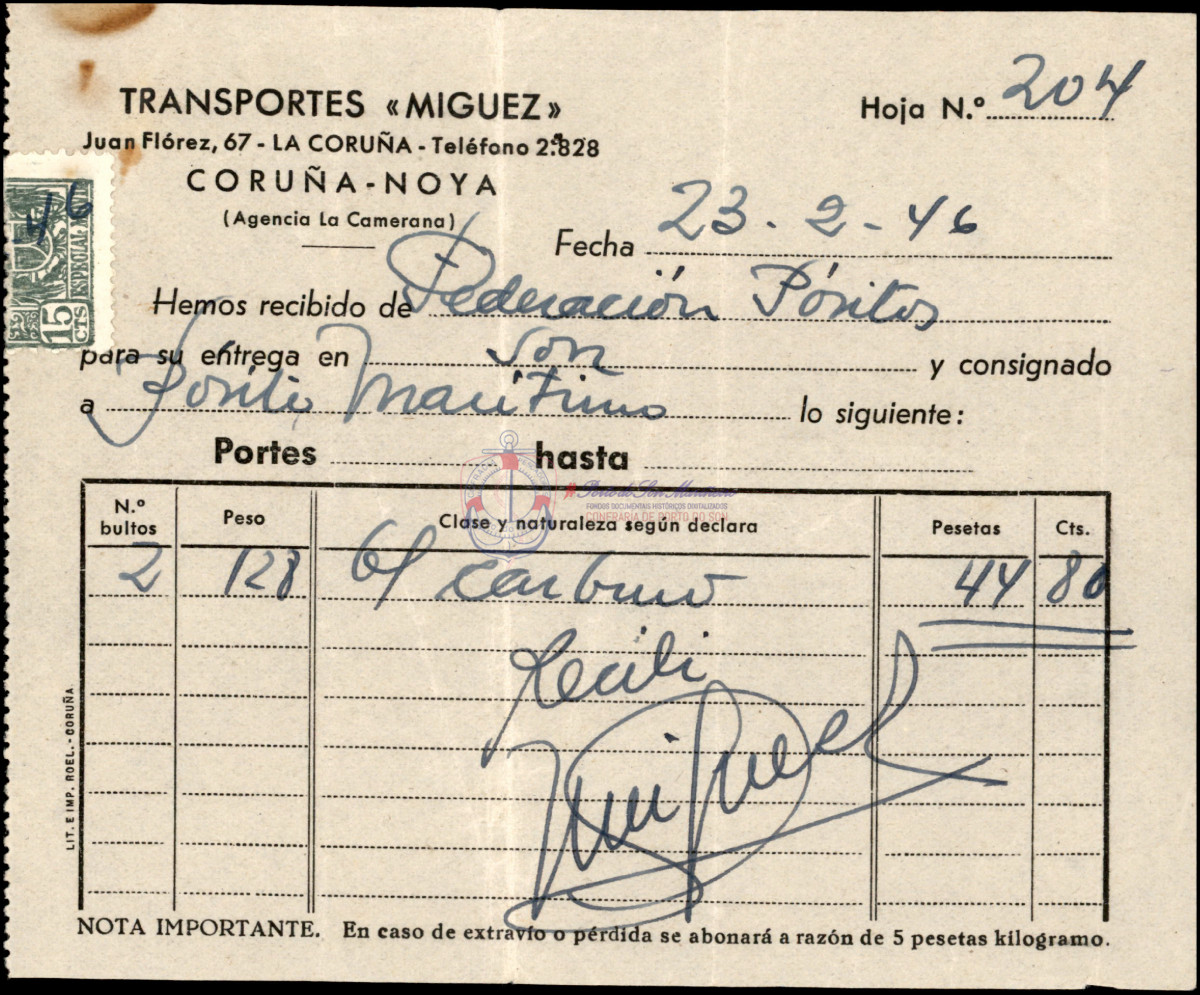 TRANSPORTES «MIGUEZ»
Hoja N.º 204
Juan Flórez, 67 - LA CORUÑA - Teléfono 2.828
CORUÑA - NOYA
(Agencia La Camerana)
Fecha 23 - 2 - 46
46
15 CTS
ESPECIAL MOVIL
Hemos recibido de Federación Pósitos
para su entrega en Son y consignado
a Posito Maritimo lo siguiente:
Portes hasta
Porto do Son Mariñeiro
FONDOS DOCUMENTAIS HISTÓRICOS DIGITALIZADOS
CONFRARÍA DE PORTO DO SON
N.º bultos Peso Clase y naturaleza según declara Pesetas Cts.
2 128 carburo 44 80
Recibi
Miguez
LIT. E IMP. ROEL. - CORUÑA
NOTA IMPORTANTE. En caso de extravío o pérdida se abonará a razón de 5 pesetas kilogramo.